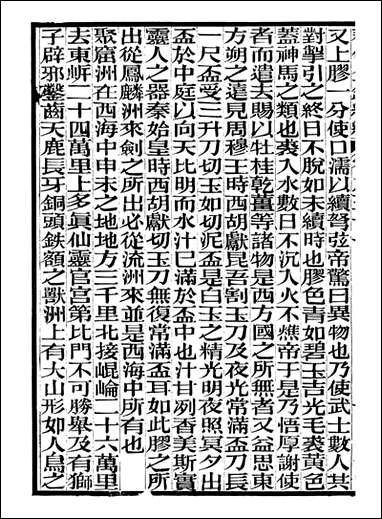 又上膠一分使口濡以續弩弦帝驚曰異物也乃使武士數人共
對掣引之終日不脫如未續時也膠色青如碧玉吉光毛裘黃色
蓋神馬之類也裘入水數日不沉入火不燋帝于是乃悟厚謝使
者而遣去賜以牡桂乾薑等諸物是西方國之所無者又益思東
方朔之遠見周穆王時西胡獻昆吾割玉刀及夜光常滿盃刀長
一尺盃受三升刀切玉如切泥盃是白玉之精光明夜照冥夕出
盃於中庭以向天比明而水汁已滿於盃中也汁甘冽香美斯實
靈人之器秦始皇時西胡獻切玉刀無復常滿盃耳如此膠之所
出從鳳麟洲來劍之所出必從流洲來並是西海中所有也
聚窟洲在西海中申未之地地方三千里北接崐崘二十六萬里
去東㟁二十四萬里上多眞仙靈官宮第比門不可勝舉及有獅
子辟邪鑿齒天鹿長牙銅頭鉄額之獸洲上有大山形如人鳥之